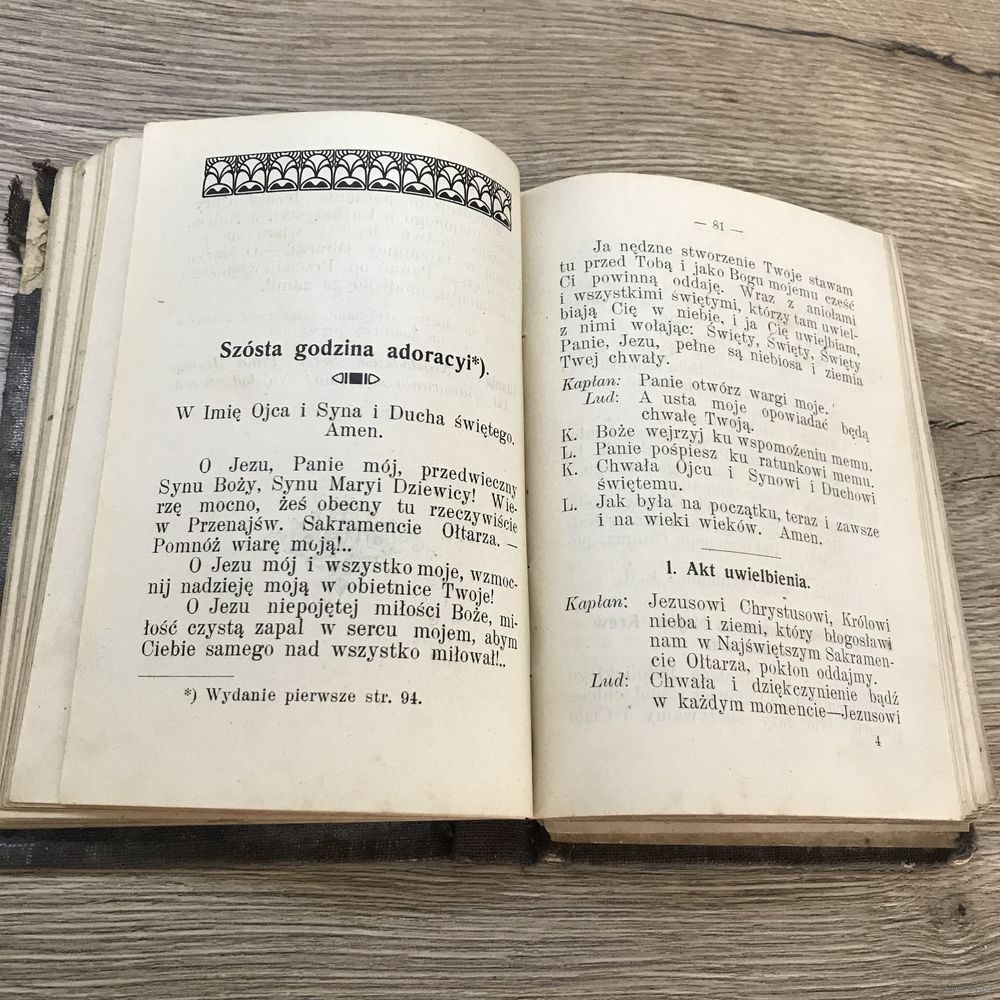 Szósta godzina adoracyi*).
W Imię Ojca i Syna i Ducha świętego.
Amen.
O Jezu, Panie mój, przedwieczny
Synu Boży, Synu Maryi Dziewicy! Wie-
rzę mocno, żeś obecny tu rzeczywiście
w Przenajśw. Sakramencie Ołtarza. —
Pomnóż wiarę moją!..
O Jezu mój i wszystko moje, wzmoc-
nij nadzieję moją w obietnice Twoje!
O Jezu niepojętej miłości Boże, mi-
łość czystą zapal w sercu mojem, abym
Ciebie samego nad wszystko miłował!..
*) Wydanie pierwsze str. 94.
— 81 —
Ja nędzne stworzenie Twoje stawam
tu przed Tobą i jako Bogu mojemu cześć
Ci powinną oddaję. Wraz z aniołami
i wszystkimi świętymi, którzy tam uwiel-
biają Cię w niebie, i ja Cię uwielbiam,
z nimi wołając: Święty, Święty, Święty
Panie, Jezu, pełne są niebiosa i ziemia
Twej chwały.
Kapłan: Panie otwórz wargi moje.
Lud: A usta moje opowiadać będą
chwałę Twoją.
K. Boże wejrzyj ku wspomożeniu memu.
L. Panie pośpiesz ku ratunkowi memu.
K. Chwała Ojcu i Synowi i Duchowi
świętemu.
L. Jak była na początku, teraz i zawsze
i na wieki wieków. Amen.
1. Akt uwielbienia.
Kapłan: Jezusowi Chrystusowi, Królowi
nieba i ziemi, który błogosławi
nam w Najświętszym Sakramen-
cie Ołtarza, pokłon oddajmy.
Lud: Chwała i dziękczynienie bądź
w każdym momencie—Jezusowi
4